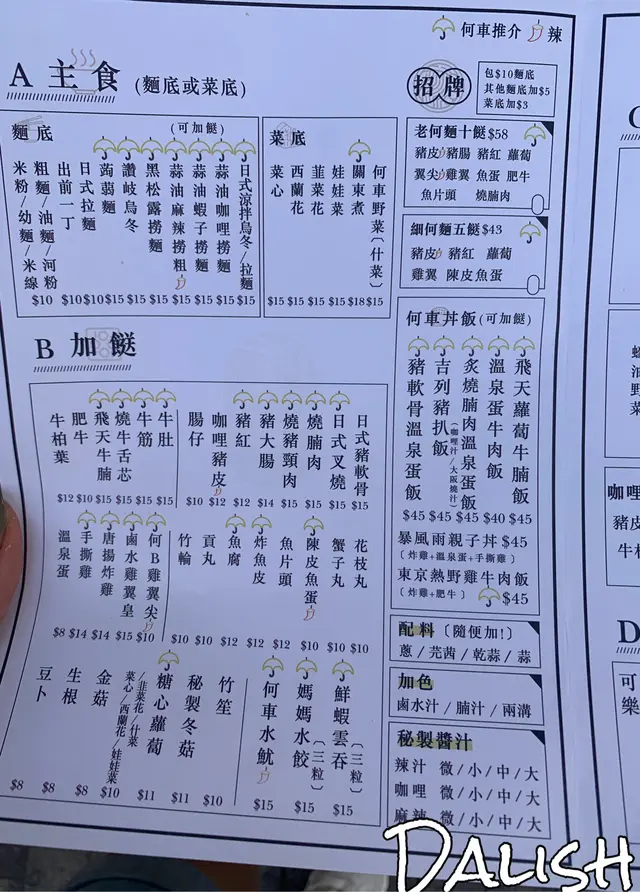 何車推介 辣
A 主食 (麵底或菜底)
招牌
包$10麵底
其他麵底加$5
菜底加$3
麵底
(可加餸)
日式涼拌烏冬/拉麵 $15
蒜油咖哩撈麵 $15
蒜油蝦子撈麵 $15
蒜油麻辣撈粗 $15
黑松露撈麵 $15
讚岐烏冬 $15
蒟蒻麵 $15
日式拉麵 $10
出前一丁 $10
粗麵/油麵/河粉
米粉/幼麵/米線
$10
菜底
何車野菜(什菜) $15
關東煮 $18
娃娃菜 $15
韮菜花 $15
西蘭花 $15
菜心 $15
老何麵十餸$58
豬皮 豬腸 豬紅 蘿蔔
翼尖 雞翼 魚蛋 肥牛
魚片頭 燒腩肉
細何麵五餸$43
豬皮 豬紅 蘿蔔
雞翼 陳皮魚蛋
何車丼飯(可加餸)
飛天蘿蔔牛腩飯 $45
溫泉蛋牛肉飯 $40
炙燒腩肉溫泉蛋飯 $45
吉列豬扒飯(咖哩汁/大阪燒汁) $45
豬軟骨溫泉蛋飯 $45
暴風雨親子丼$45
(炸雞+溫泉蛋+手撕雞)
東京熱野雞牛肉飯
(炸雞+肥牛) $45
B 加餸
日式豬軟骨 $15
日式叉燒 $15
燒腩肉 $15
燒豬頸肉 $15
豬大腸 $14
豬紅 $12
咖哩豬皮 $12
腸仔 $10
牛肚 $15
牛筋 $15
燒牛舌芯 $15
飛天牛腩 $15
肥牛 $10
牛柏葉 $12
花枝丸 $10
蟹子丸 $10
陳皮魚蛋 $10
魚片頭 $12
炸魚皮 $12
魚腐 $12
貢丸 $10
竹輪 $10
何B雞翼尖 $10
鹵水雞翼皇 $15
唐揚炸雞 $14
手撕雞 $14
溫泉蛋 $8
鮮蝦雲吞(三粒) $15
媽媽水餃(三粒) $15
何車水魷 $15
竹笙 $10
秘製冬菇 $11
糖心蘿蔔 $11
/韭菜花/什菜
菜心/西蘭花/娃娃菜 $10
金菇 $8
生根 $8
豆卜 $8
$8
配料〔隨便加!〕
蔥/芫茜/乾蒜/蒜
加色
鹵水汁/腩汁/兩溝
秘製醬汁
辣汁 微/小/中/大
咖哩 微/小/中/大
麻辣 微/小/中/大
咖哩
豬皮
牛柏
D
可
樂
DALISH